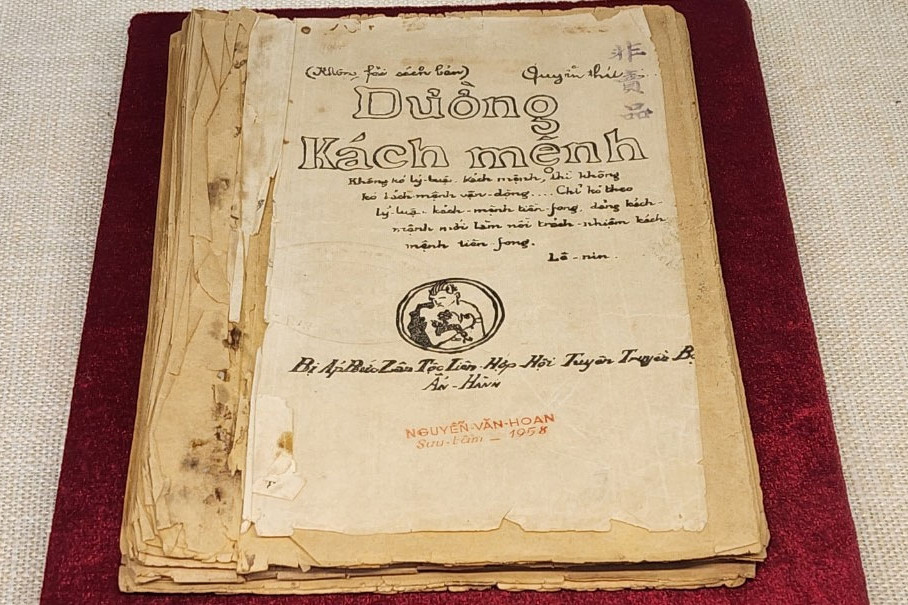 (Không fải sách bán) Quyển thứ
非賣品
Đường
Kách mệnh
Không kó lý-luận kách mệnh, thì không
kó kách mệnh vận-động.... Chỉ kó theo
lý-luận kách-mệnh tiền-fong, đảng kách-
mệnh mới làm nổi trách-nhiệm kách
mệnh tiền-fong.
Lê-nin.
Bị Áp Bức Zân Tộc Liên-Hợp-Hội Tuyên Truyền Bộ
Ấn-Hành
NGUYỄN-VĂN-HOAN
Sưu-tầm - 1958